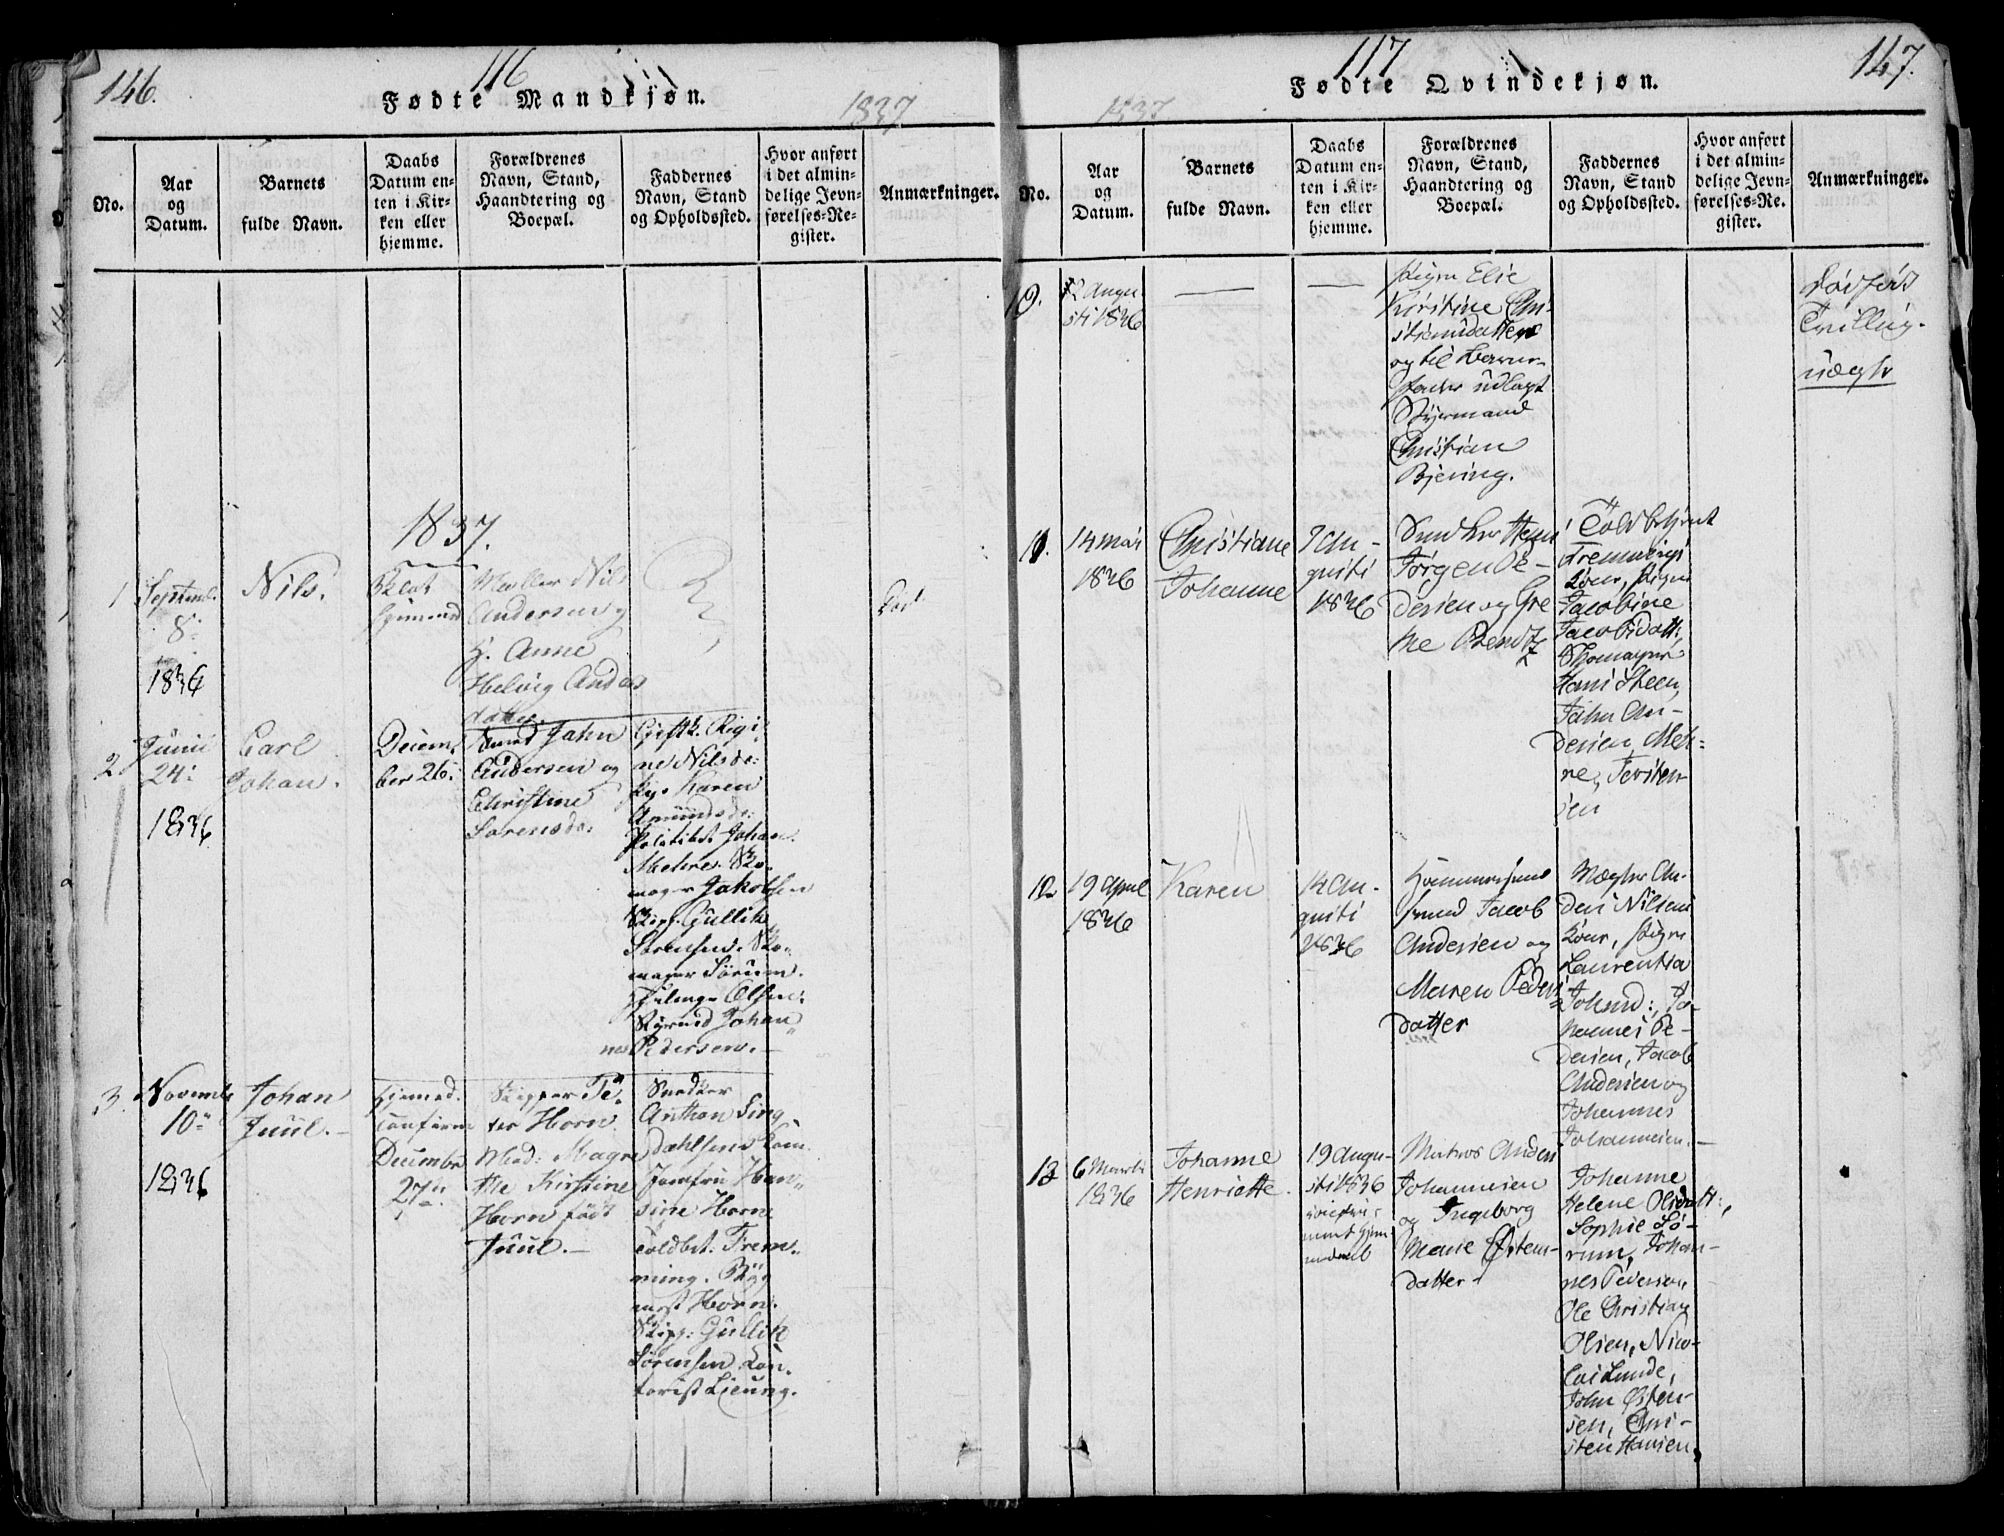 146.
116
Fødte Mandkjøn.
1837
No.
Aar
og
Datum.
Barnets
fulde Navn.
Daabs
Datum en-
ten i Kir-
ken eller
hjemme.
Forældrenes
Navn, Stand,
Haandtering og
Boepæl.
Faddernes
Navn, Stand
og Opholdssted.
Hvor anført
i det almin-
delige Jevn-
førelses-Re-
gister.
Anmærkninger.
1837.
1
Septemb.
8:
1836
Nils.
Anderseny
H. Anne
Helvig Anders
datter.
2
Junii
24:
1836
Carl
Johan.
Decem-
ber 26:
Jahn
Andersen og
Christine
Sørensda:
Regi-
ne Nilsda:
Karen
Amundsda:
Johan
Mehre. Sko-
mager Jakobsen
Skipp. Gullik
Sørensen. Sko-
mager Sørum.
Olsen.
Styrmd Johan-
nes Pedersen.
3.
Novemb.
10
1836
Johan
Juul.
Hjemmed.
confirm
Decembr
27
Skipper Pe-
ter Horn.
Mad: Magre-
the Kirstine
Horn født
Juul.
Snedker
Anthon Ling
Dahlsens Kone
Jomfru Han-
sine Horn
Toldbet. Frem-
ming. Bÿg
mest Horn.
Skipp: Gullik
Sørensen Kon-
torist Lieung.
117
147.
Fødte Qvindekjøn.
1837
No.
Aar
og
Datum.
Barnets
fulde Navn.
Daabs
Datum en-
ten i Kir-
ken eller
hjemme.
Forældrenes
Navn, Stand,
Haandtering og
Boepæl.
Faddernes
Navn, Stand
og Opholdssted.
Hvor anført
i det almin-
delige Jevn-
førelses-Re-
gister.
Anmærkninger.
10.
12 Augu-
sti 1836
Pigen Elie
Kirstine Chri-
stiansdatter
og til Barne-
fader udlagt
Styrmand
Christian
Bjering.
Dødfød
Tvilling.
uægte
11.
14 Mai
1836
Christiane
Johanne
7 Au-
gusti
1836
Snedker Hans
Jørgen Pe-
dersen og Gre
the Bendtz
Toldbetjent
Fremmings
Kone, Pigen
Jacobine
Jacobsdatt:,
Skomager
Hans Steen,
John An-
dersen Meh-
re, Torsten-
sen
12
19 April
1836
Karen
14 Au-
gusti
1836
Tømmermand
Jacob
Andersen og
Maren Peders
datter
Mægler An-
ders Nilsens
Kone, Pigen
Laurentia
Johnsd:, Jo-
hannes Pe-
dersen, Jacob
Andersen og
Johannes
Johannesen.
13
6 Marti
1836
Johanne
Henriette.
19 Augu-
sti 1836
Matros Anders
Johannesen
og Ingeborg
Marie Østens-
datter
Johanne
Helene Olsdatt:,
Sophie Sø-
rum, Johan-
nes Pedersen,
Ole Christian
Olsen, Nico-
lai Lunde,
John Østen-
sen, Chri-
sten Hansen,